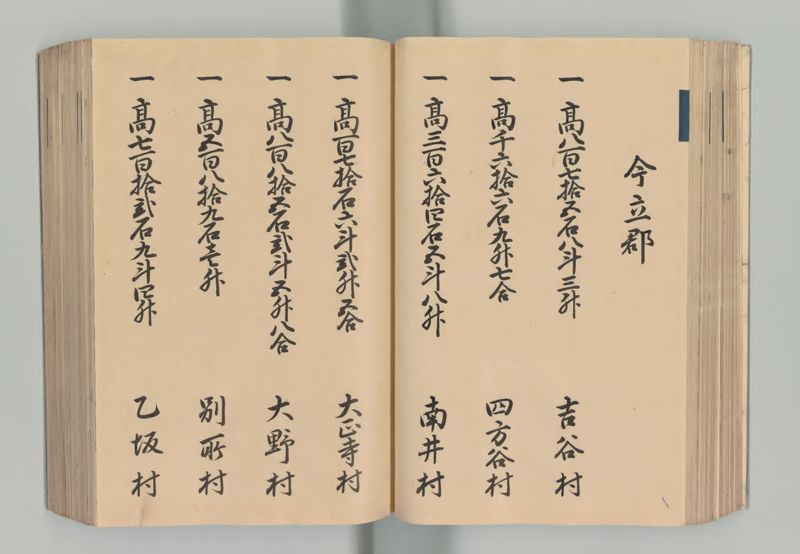 今立郡
一 高八百七拾五石八斗三升 吉谷村
一 高千六拾六石九升七合 四方谷村
一 高三百六拾四石五斗八升 南井村
一 高百七拾石六斗弐升五合 大正寺村
一 高八百八拾五石弐斗五升八合 大野村
一 高五百八拾九石壱升 別所村
一 高七百拾弐石九斗四升 乙坂村